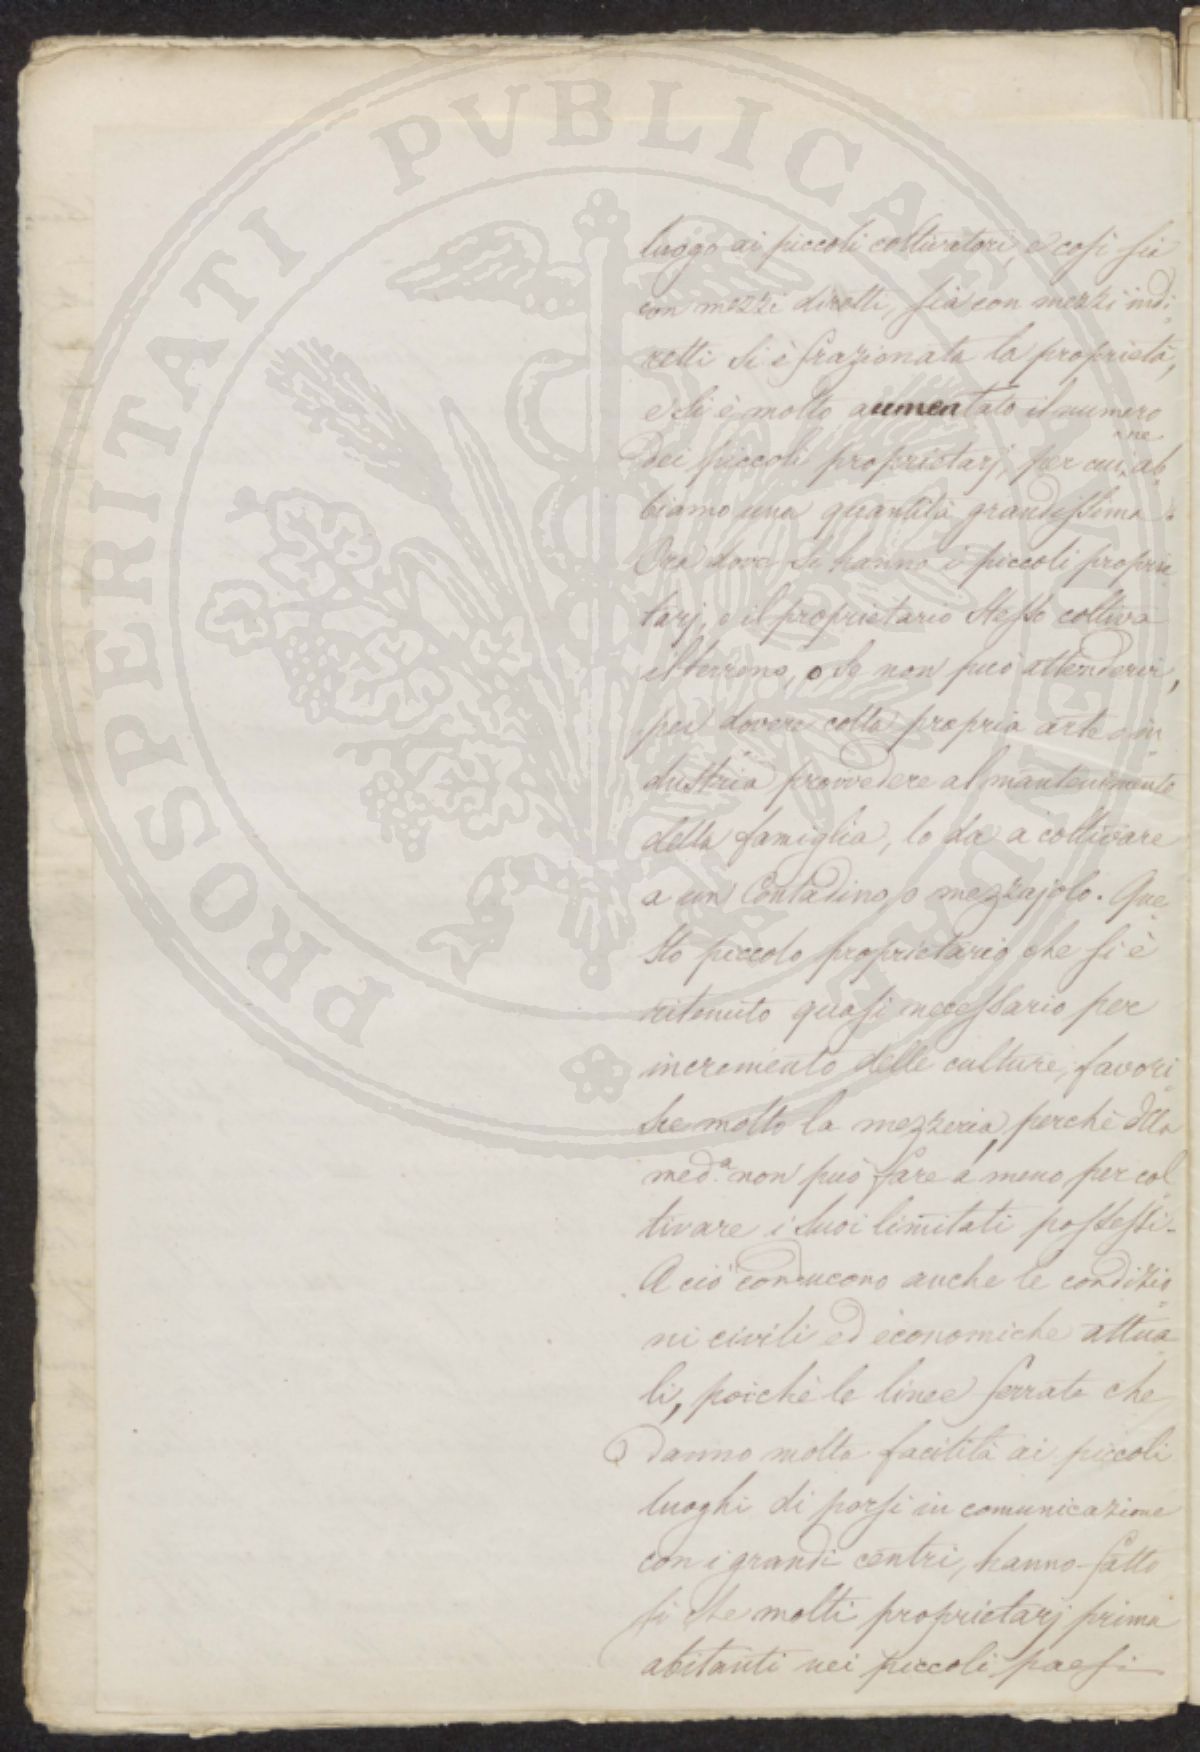 PROSPERITATI PVBLICAE
luogo ai piccoli coltivatori, e così sia
con mezzi diretti, sia con mezzi indi-
retti si è frazionata la proprietà,
e si è molto aumentato il numero
dei piccoli proprietarj, per cui ne ab-
biamo una quantità grandissima.
Ora dove si hanno i piccoli proprie-
tarj, o il proprietario stesso coltiva
il terreno, o se non può attendervi,
per dovere colla propria arte o in-
dustria provvedere al mantenimento
della famiglia, lo da a coltivare
a un Contadino o mezzajolo. Que-
sto piccolo proprietario che si è
ritenuto quasi necessario per
incremento delle culture, favori-
sce molto la mezzeria, perchè della
med.a non può fare a meno per col-
tivare i suoi limitati possessi.
A ciò conducono anche le condizio-
ni civili ed economiche attua-
li, poichè le linee ferrate che
danno molta facilità ai piccoli
luoghi di porsi in comunicazione
con i grandi centri, hanno fatto
si che molti proprietarj prima
abitanti nei piccoli paesi